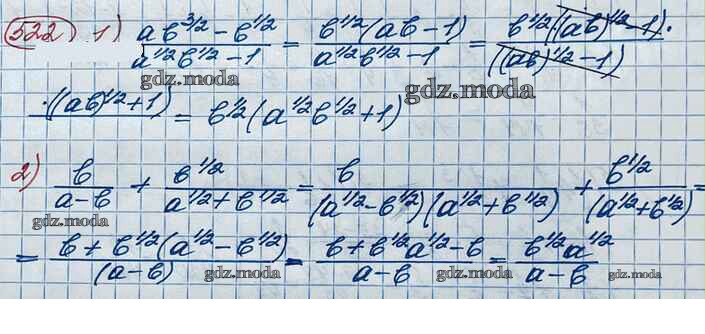 522) 1) (ab^{3/2} - b^{1/2})/(a^{1/2}b^{1/2} - 1) = (b^{1/2}(ab - 1))/(a^{1/2}b^{1/2} - 1) = (b^{1/2}((ab)^{1/2} - 1)·)/((ab)^{1/2} - 1)
gdz.moda
gdz.moda
·((ab)^{1/2} + 1) = b^{1/2}(a^{1/2}b^{1/2} + 1)
2) b/(a - b) + b^{1/2}/(a^{1/2} + b^{1/2}) = b/((a^{1/2} - b^{1/2})(a^{1/2} + b^{1/2})) + b^{1/2}/(a^{1/2} + b^{1/2}) =
gdz.moda
= (b + b^{1/2}(a^{1/2} - b^{1/2}))/(a - b) = (b + b^{1/2}a^{1/2} - b)/(a - b) = (b^{1/2}a^{1/2})/(a - b)
gdz.moda gdz.moda gdz.moda